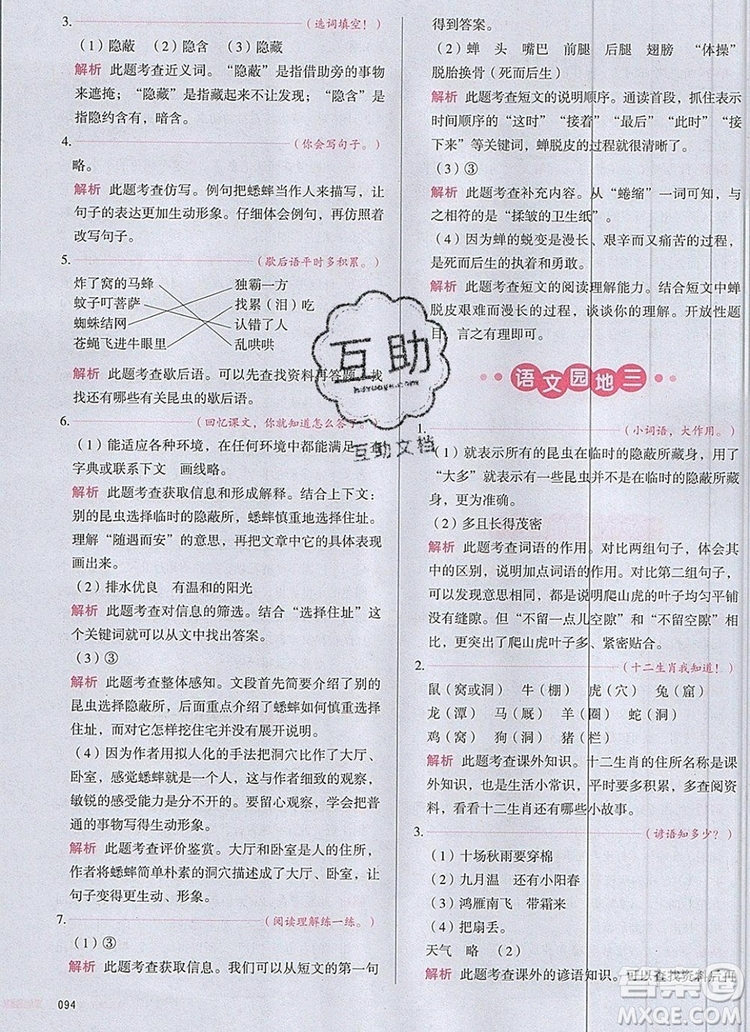 3.（选词填空！）
（1）隐蔽 （2）隐含 （3）隐藏
解析 此题考查近义词。“隐蔽”是指借助旁的事物
来遮掩；“隐藏”是指藏起来不易发现；“隐含”是
指隐约含有，暗含。
4.（你会写句子。）
略。
解析 此题考查仿写。例句把蟋蟀当作人来描写，让
句子的表达更加生动形象。仔细体会例句，再仿照着
改写句子。
5.（歇后语平时多积累。）
炸了窝的马蜂 独霸一方
蚊子叮菩萨 找累（泪）吃
蜘蛛结网 认错了人
苍蝇飞进牛眼里 乱哄哄
解析 此题考查歇后语。可以先查找资料再答题。找
找还有哪些有关昆虫的歇后语。
6.（回忆课文，你就知道怎么答了。）
（1）能适应各种环境，在任何环境中都能满足。
字典或联系下文 画线略。
解析 此题考查获取信息和形成解释。结合上下文：
别的昆虫选择临时的隐蔽所，蟋蟀慎重地选择住址。
理解“随遇而安”的意思，再文中直接画出相关描写
画出来。
（2）排水优良 有温和的阳光
解析 此题考查对信息的筛选。结合“选择住址”这
个关键词就可以从文中找出答案。
（3）③
解析 此题考查整体感知。文段首先简要介绍了别的
昆虫选择隐蔽所，然后重点介绍了蟋蟀如何慎重选择
住址，而对它怎样挖住宅并没有展开说明。
（4）因为作者用拟人化的手法把洞穴比作了大厅、
卧室，感觉更加生动，这与作者细致的观察，
敏锐的感受能力是分不开的。要留心观察，把普
通的事物写得生动形象。
解析 此题考查评价鉴赏。大厅和卧室是人的住所，
作者将蟋蟀简单朴素的洞穴比作了大厅、卧室等，让
句子变得更生动、形象。
7.（阅读理解练一练。）
（1）③
解析 此题考查获取信息。我们可以从短文的第一句
094
得到答案。
（2）蝉 头 嘴巴 前腿 后腿 翅膀 “体操”
脱胎换骨（死而后生）
解析 此题考查短文的说明顺序。通读首段，抓住表示
时间顺序的“这时”“接着”“最后”“此时”“接
下来”等关键词，蝉脱皮的过程就很容易写出来了。
（3）③
解析 此题考查补充内容。从“蜷缩”一词可知，与
之相符的是“揉皱的卫生纸”。
（4）因为蝉的蜕变是漫长、艰辛而又痛苦的过程，
是死而后生的执着和勇气。
解析 此题考查短文的阅读理解能力。结合短文中蝉
脱皮艰难而漫长的过程，谈谈你的理解。开放性题
目，言之有理即可。
语文园地三
1.（小词语，大作用。）
（1）就表示所有的昆虫在临时的隐蔽所藏身，用了
“大多”就表示大部分的昆虫在临时的隐蔽所藏身。
（2）多且长得茂密
解析 此题考查词语的作用。对比两组句子，体会其
中的区别，说明加点词语的作用。对比第二组句子，
可以发现意思差不多，说明爬山虎的叶子均匀平铺
没有缝隙。但“不留一点儿空隙”和“不留一点缝
隙”更突出了爬山虎叶子多、密的特点。
2.（十二生肖我知道！）
鼠（窝或洞） 牛（棚） 虎（穴） 兔（窟）
龙（潭） 马（厩） 羊（圈） 蛇（洞）
鸡（窝） 狗（窝） 猪（圈）
解析 此题考查课外知识。十二生肖的住所名称是课
外知识，也是生活小常识，平时要多积累，多查阅资
料，看看十二生肖还有哪些小故事。
3.（谚语知多少？）
（1）十场秋雨要穿棉
（2）九月温 还有小阳春
（3）鸿雁南飞 带霜来
（4）把扇丢。
天气 略 （2）
解析 此题考查课外的谚语知识。可以查找资料后再
互助
hdzuoye.com
互助文档
答案圈
MXQE.COM